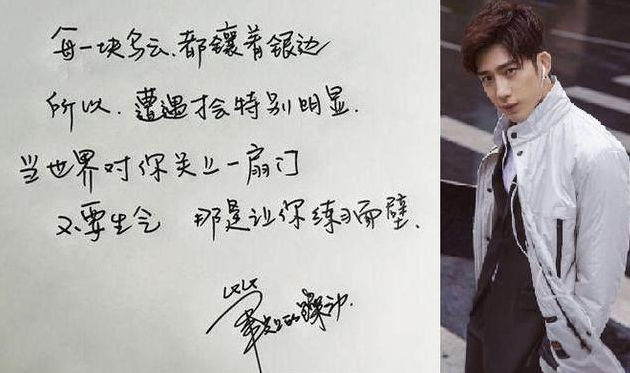 每一块乌云、都镶着银边
所以.遭遇才会特别明显.
当世界对你关上一扇门
不要生气 那是让你练习面壁.